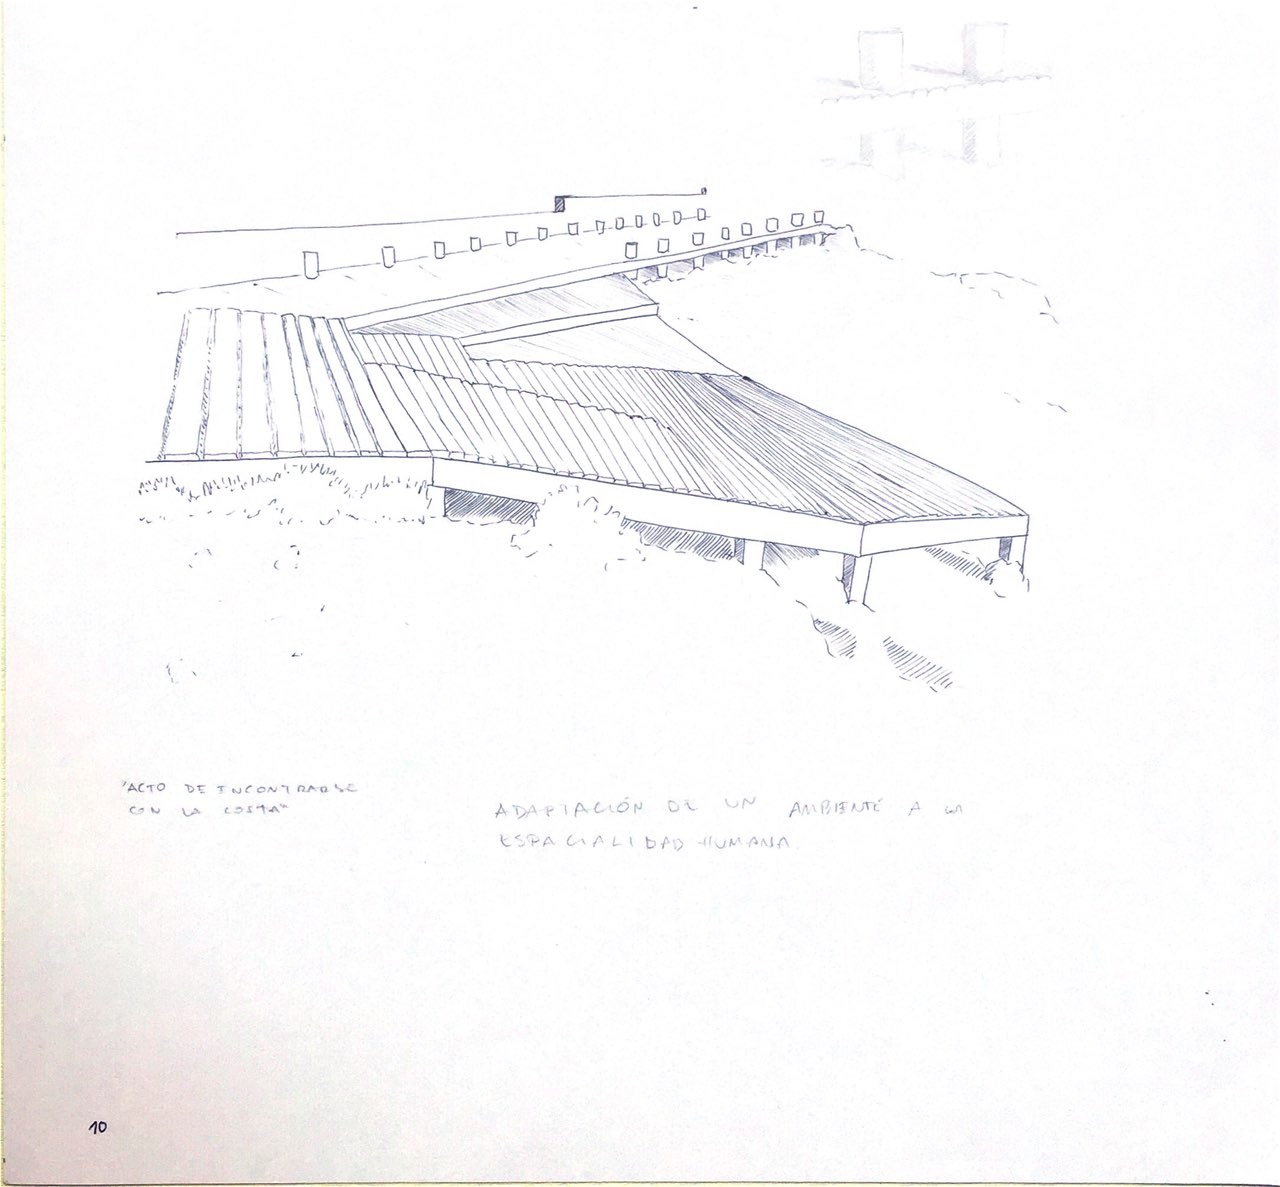 "ACTO DE ENCONTRARSE
CON LA COSTA"
ADAPTACIÓN DE UN AMBIENTE A LA
ESPACIALIDAD HUMANA.
10